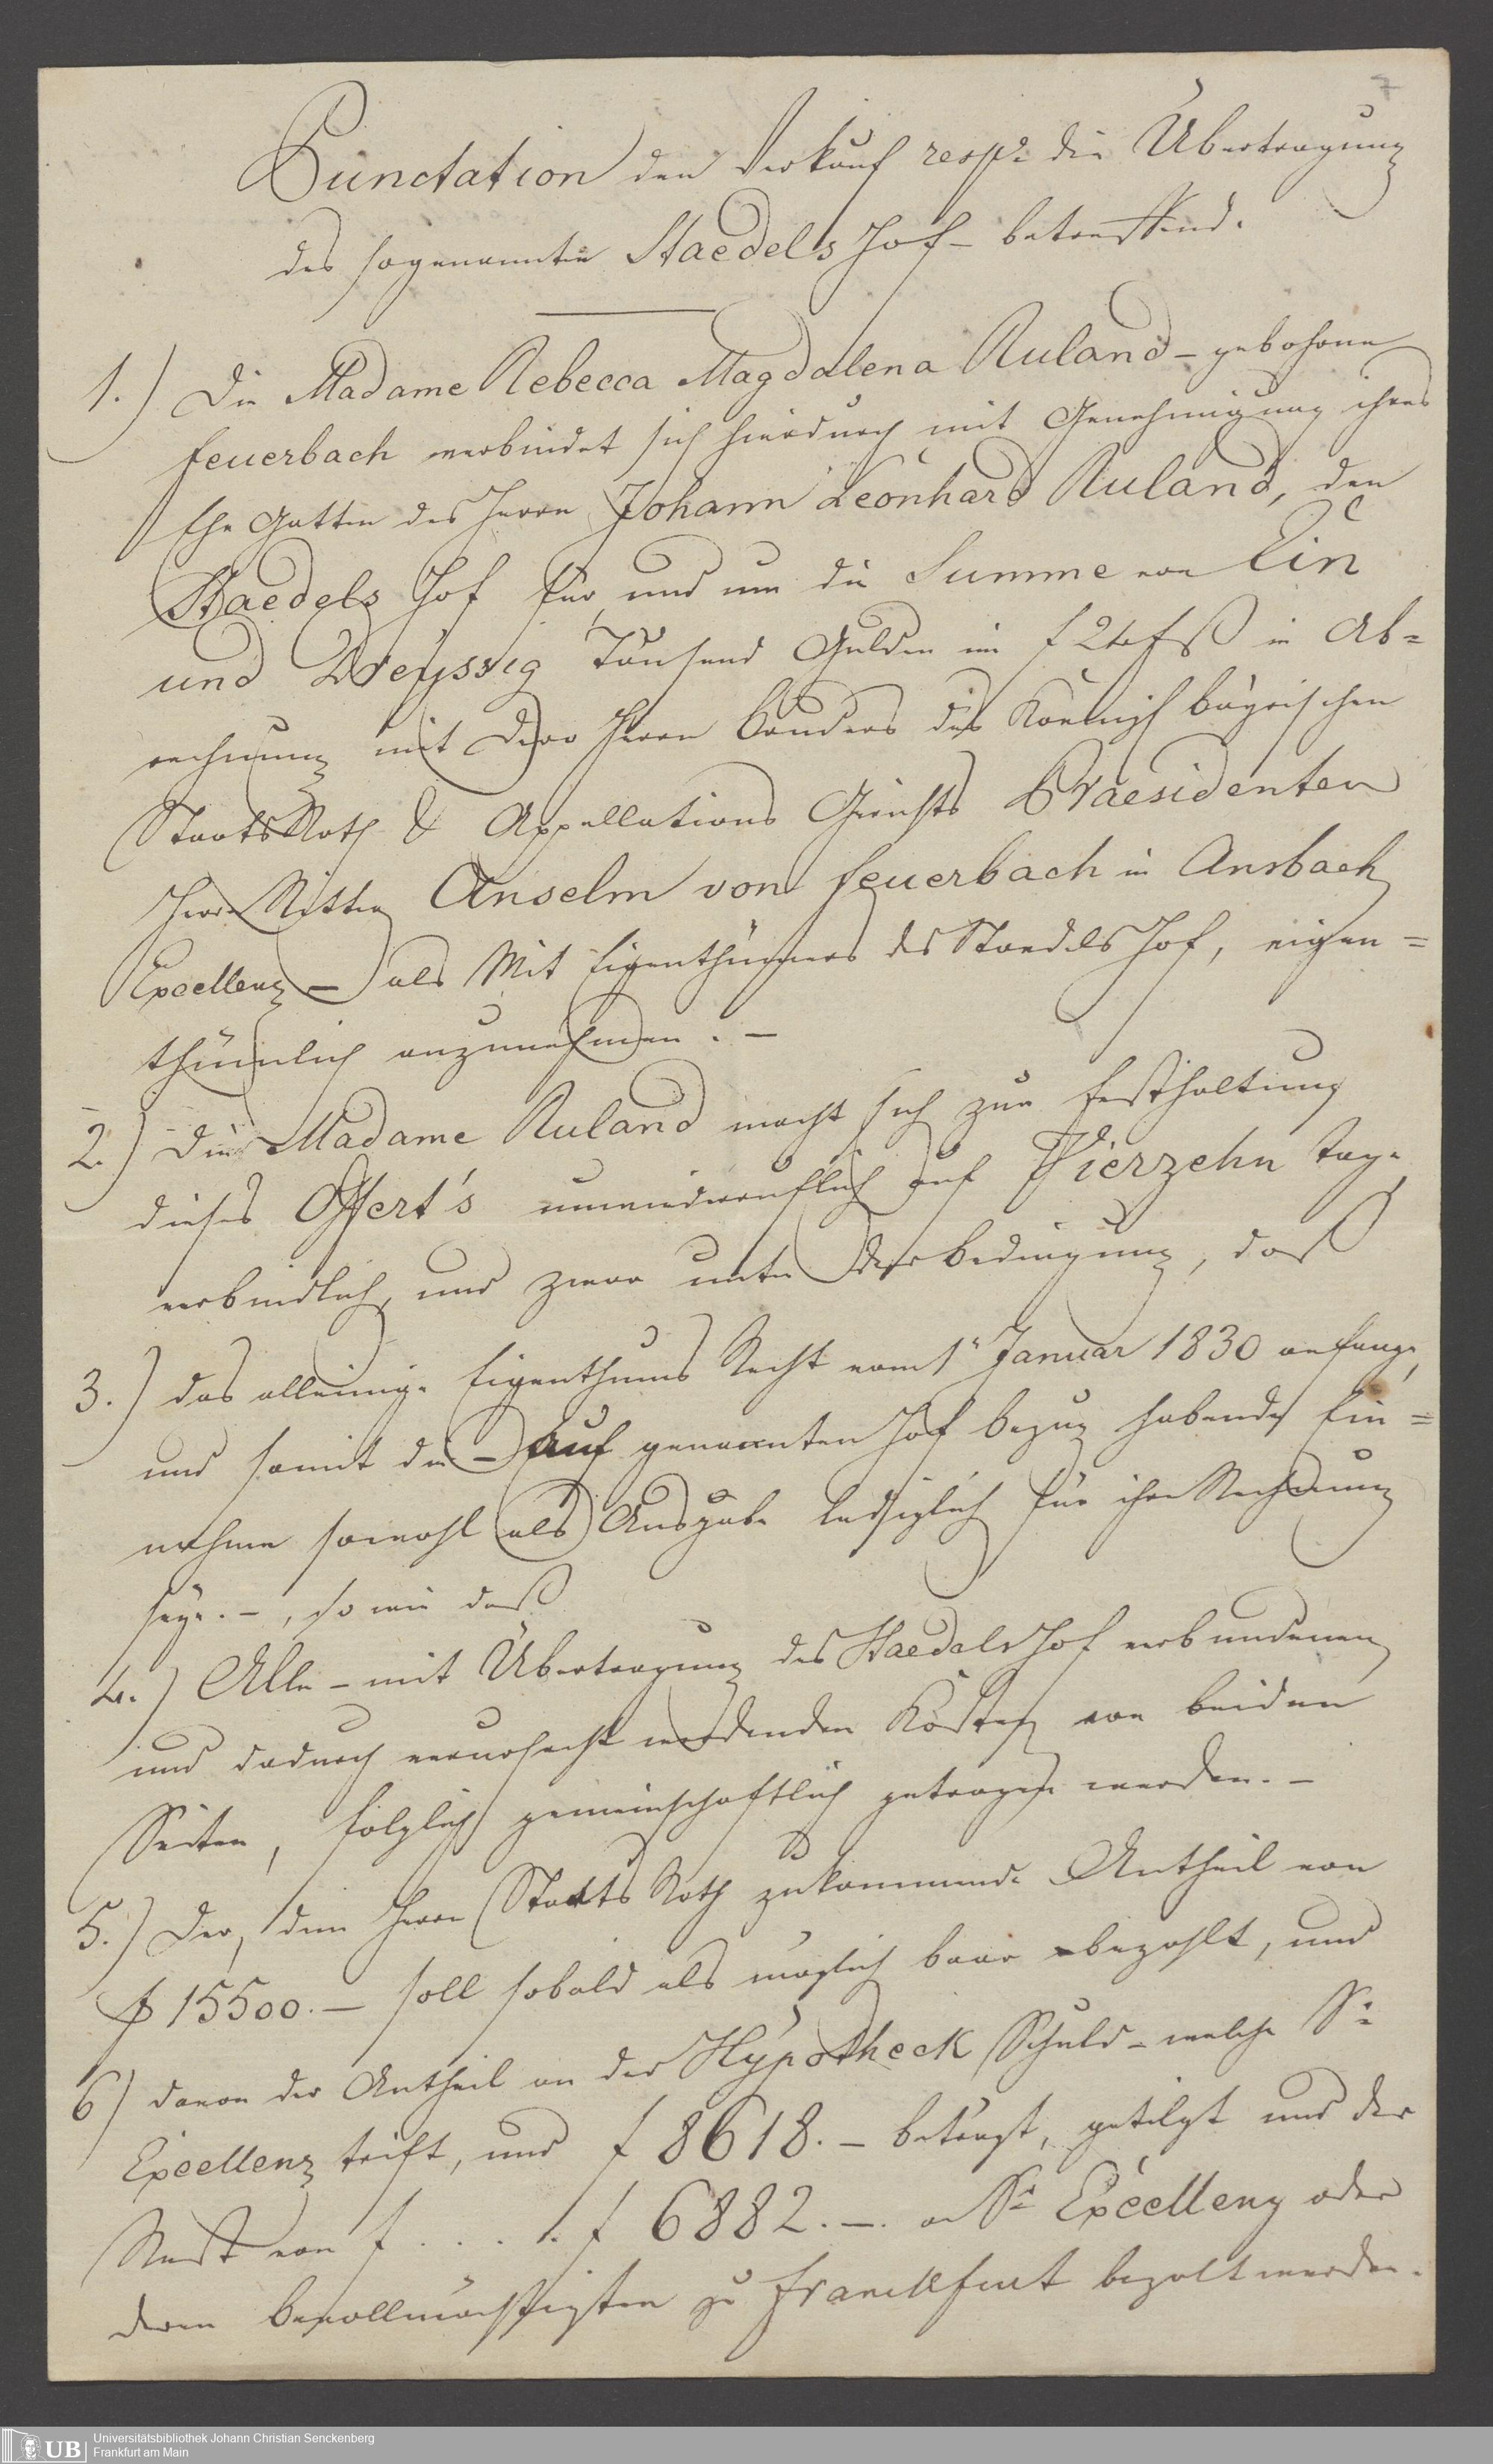 7
Punctation den Verkauf resp. die Übertragung
des sogenannten Staedels Hof - betreffend.
1.) Die Madame Rebecca Magdalena Ruland - gebohrne
Feuerbach verbindet sich hierdurch mit Genehmigung ihres
Ehe Gatten des Herrn Johann Leonhard Ruland, den
Staedels Hof für und um die Summe von Ein
und Dreyssig Tausend Gulden im f 24 f ß in Ab=
rechnung mit Dero Herrn Bruders des Königl bayrischen
StaatsRath & Appellations Gerichts Praesidenten
Herrn Ritter Anselm von Feuerbach in Ansbach
Excellenz - als Mit Eigenthümers des Staedels Hof, eigen=
thümlich anzunehmen. -
2.) Die Madame Ruland macht sich zur Festhaltung
dieses Offert's unwiderruflich auf Vierzehn Tage
verbindlich, und zwar unter der Bedingung, daß
3.) das alleinige Eigenthums Recht vom 1n Januar 1830 anfange,
und somit die - auf genannten Hof bezug habende Ein=
nahme sowohl als Ausgabe lediglich für ihre Rechnung
seye. -, so wie daß
4.) Alle - mit Übertragung des Staedels Hof verbundenen
und dadurch verursacht werdenden Kosten von beiden
Seiten, folglich gemeinschaftlich getragen werden. -
5.) Der, dem Herrn Staats Rath zukommende Antheil von
f 15500. - soll sobald als möglich baar bezahlt, und
6) davon der Antheil an der Hypotheck Schuld - welche Sr
Excellenz trift, und f 8618. - beträgt, getilgt und der
Rest von f . . . . f 6882. -. an Sr Excellenz oder
deren Bevollmächtigten zu Franckfurt bezalt werden.
UB
Universitätsbibliothek Johann Christian Senckenberg
Frankfurt am Main